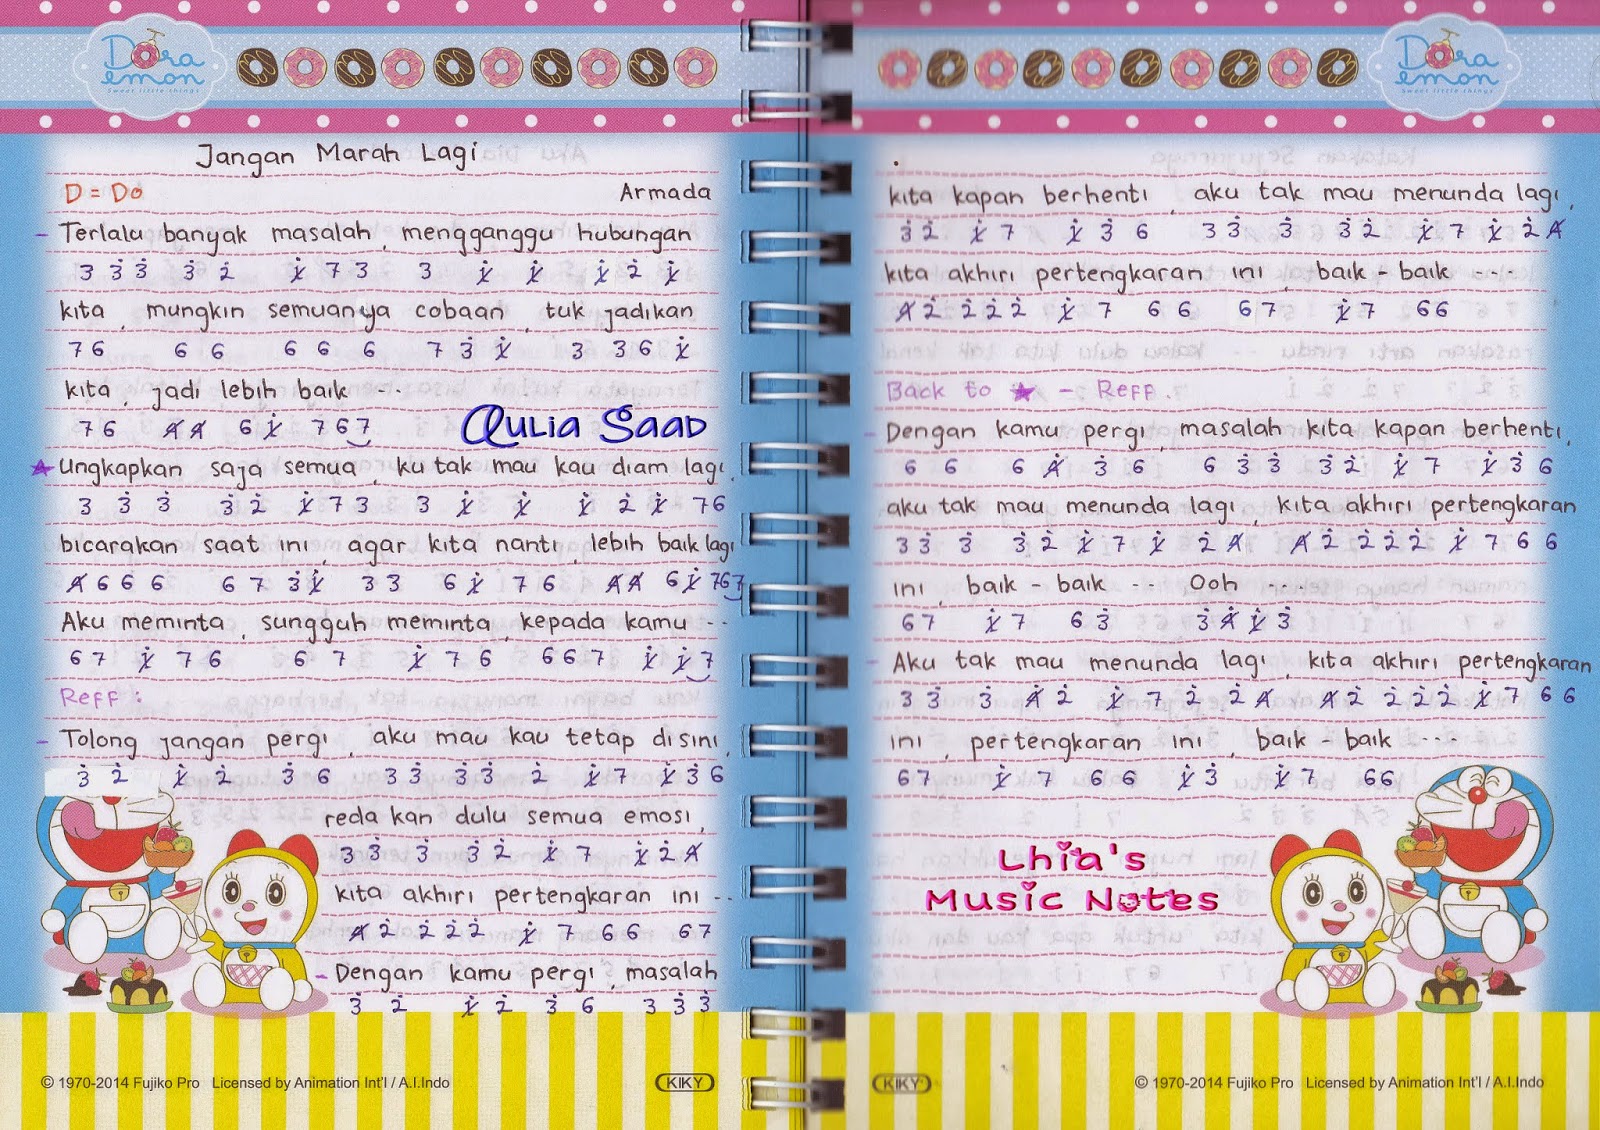 Dora
emon
Sweet little things
Jangan Marah Lagi
D = Do
Armada
- Terlalu banyak masalah, mengganggu hubungan
3 3̇ 3̇ 3̇ 2̇ 1̸̇ 7 3 3 1̸̇ 1̸̇ 1̸̇ 2̇ 1̸̇
kita, mungkin semuanya cobaan, tuk jadikan
7 6 6 6 6 6 6 7 3̇ 1̸̇ 3 3 6 1̸̇
kita, jadi lebih baik ---
7 6 4̸ 4̸ 6 1̸̇ 7 6 7
Aulia Saad
★ Ungkapkan saja semua, ku tak mau kau diam lagi,
3 3̇ 3̇ 3̇ 2̇ 1̸̇ 7 3 3 1̸̇ 1̸̇ 1̸̇ 2̇ 1̸̇ 7 6
bicarakan saat ini, agar kita nanti, lebih baik lagi
4̸ 6 6 6 6 7 3̇ 1̸̇ 3 3 6 1̸̇ 7 6 4̸ 4̸ 6 1̸̇ 7 6 7
Aku meminta, sungguh meminta, kepada kamu --
6 7 1̸̇ 7 6 6 7 1̸̇ 7 6 6 6 7 1̸̇ 1̸̇ 7
Reff :
- Tolong jangan pergi, aku mau kau tetap disini,
3̇ 2̇ 1̸̇ 2̇ 3̇ 6 3 3̇ 3̇ 3̇ 2̇ 1̸̇ 7 1̸̇ 3̇ 6
reda kan dulu semua emosi,
3 3̇ 3̇ 3̇ 2̇ 1̸̇ 7 1̸̇ 2̇ 4̸
kita akhiri pertengkaran ini --
4̸ 2̇ 2̇ 2̇ 2̇ 1̸̇ 7 6 6 6 7
- Dengan kamu pergi, masalah
3̇ 2̇ 1̸̇ 2̇ 3̇ 6 3 3̇ 3̇
© 1970-2014 Fujiko Pro Licensed by Animation Int'l / A.I.Indo
KIKY
Dora
emon
Sweet little things
kita kapan berhenti, aku tak mau menunda lagi,
3̇ 2̇ 1̸̇ 7 1̸̇ 3̇ 6 3 3̇ 3̇ 3̇ 2̇ 1̸̇ 7 1̸̇ 2̇ 4̸
kita akhiri pertengkaran ini, baik - baik ----
4̸ 2̇ 2̇ 2̇ 2̇ 1̸̇ 7 6 6 6 7 1̸̇ 7 6 6
Back to ★ - Reff.
- Dengan kamu pergi, masalah kita kapan berhenti,
6 6 6 4̸ 3̇ 6 6 3̇ 3̇ 3̇ 2̇ 1̸̇ 7 1̸̇ 3̇ 6
aku tak mau menunda lagi, kita akhiri pertengkaran
3 3̇ 3̇ 3̇ 2̇ 1̸̇ 7 1̸̇ 2̇ 4̸ 4̸ 2̇ 2̇ 2̇ 2̇ 1̸̇ 7 6 6
ini, baik - baik --- Ooh ---
6 7 1̸̇ 7 6 3̇ 3̇ 4̸̇ 1̸̇ 3̇
- Aku tak mau menunda lagi, kita akhiri pertengkaran
3 3̇ 3̇ 4̸̇ 2̇ 1̸̇ 7 2̇ 2̇ 4̸ 4̸ 2̇ 2̇ 2̇ 2̇ 1̸̇ 7 6 6
ini, pertengkaran ini, baik - baik ---
6 7 1̸̇ 7 6 6 1̸̇ 3̇ 1̸̇ 7 6 6
Lhia's
Music Notes
© 1970-2014 Fujiko Pro Licensed by Animation Int'l / A.I.Indo
KIKY